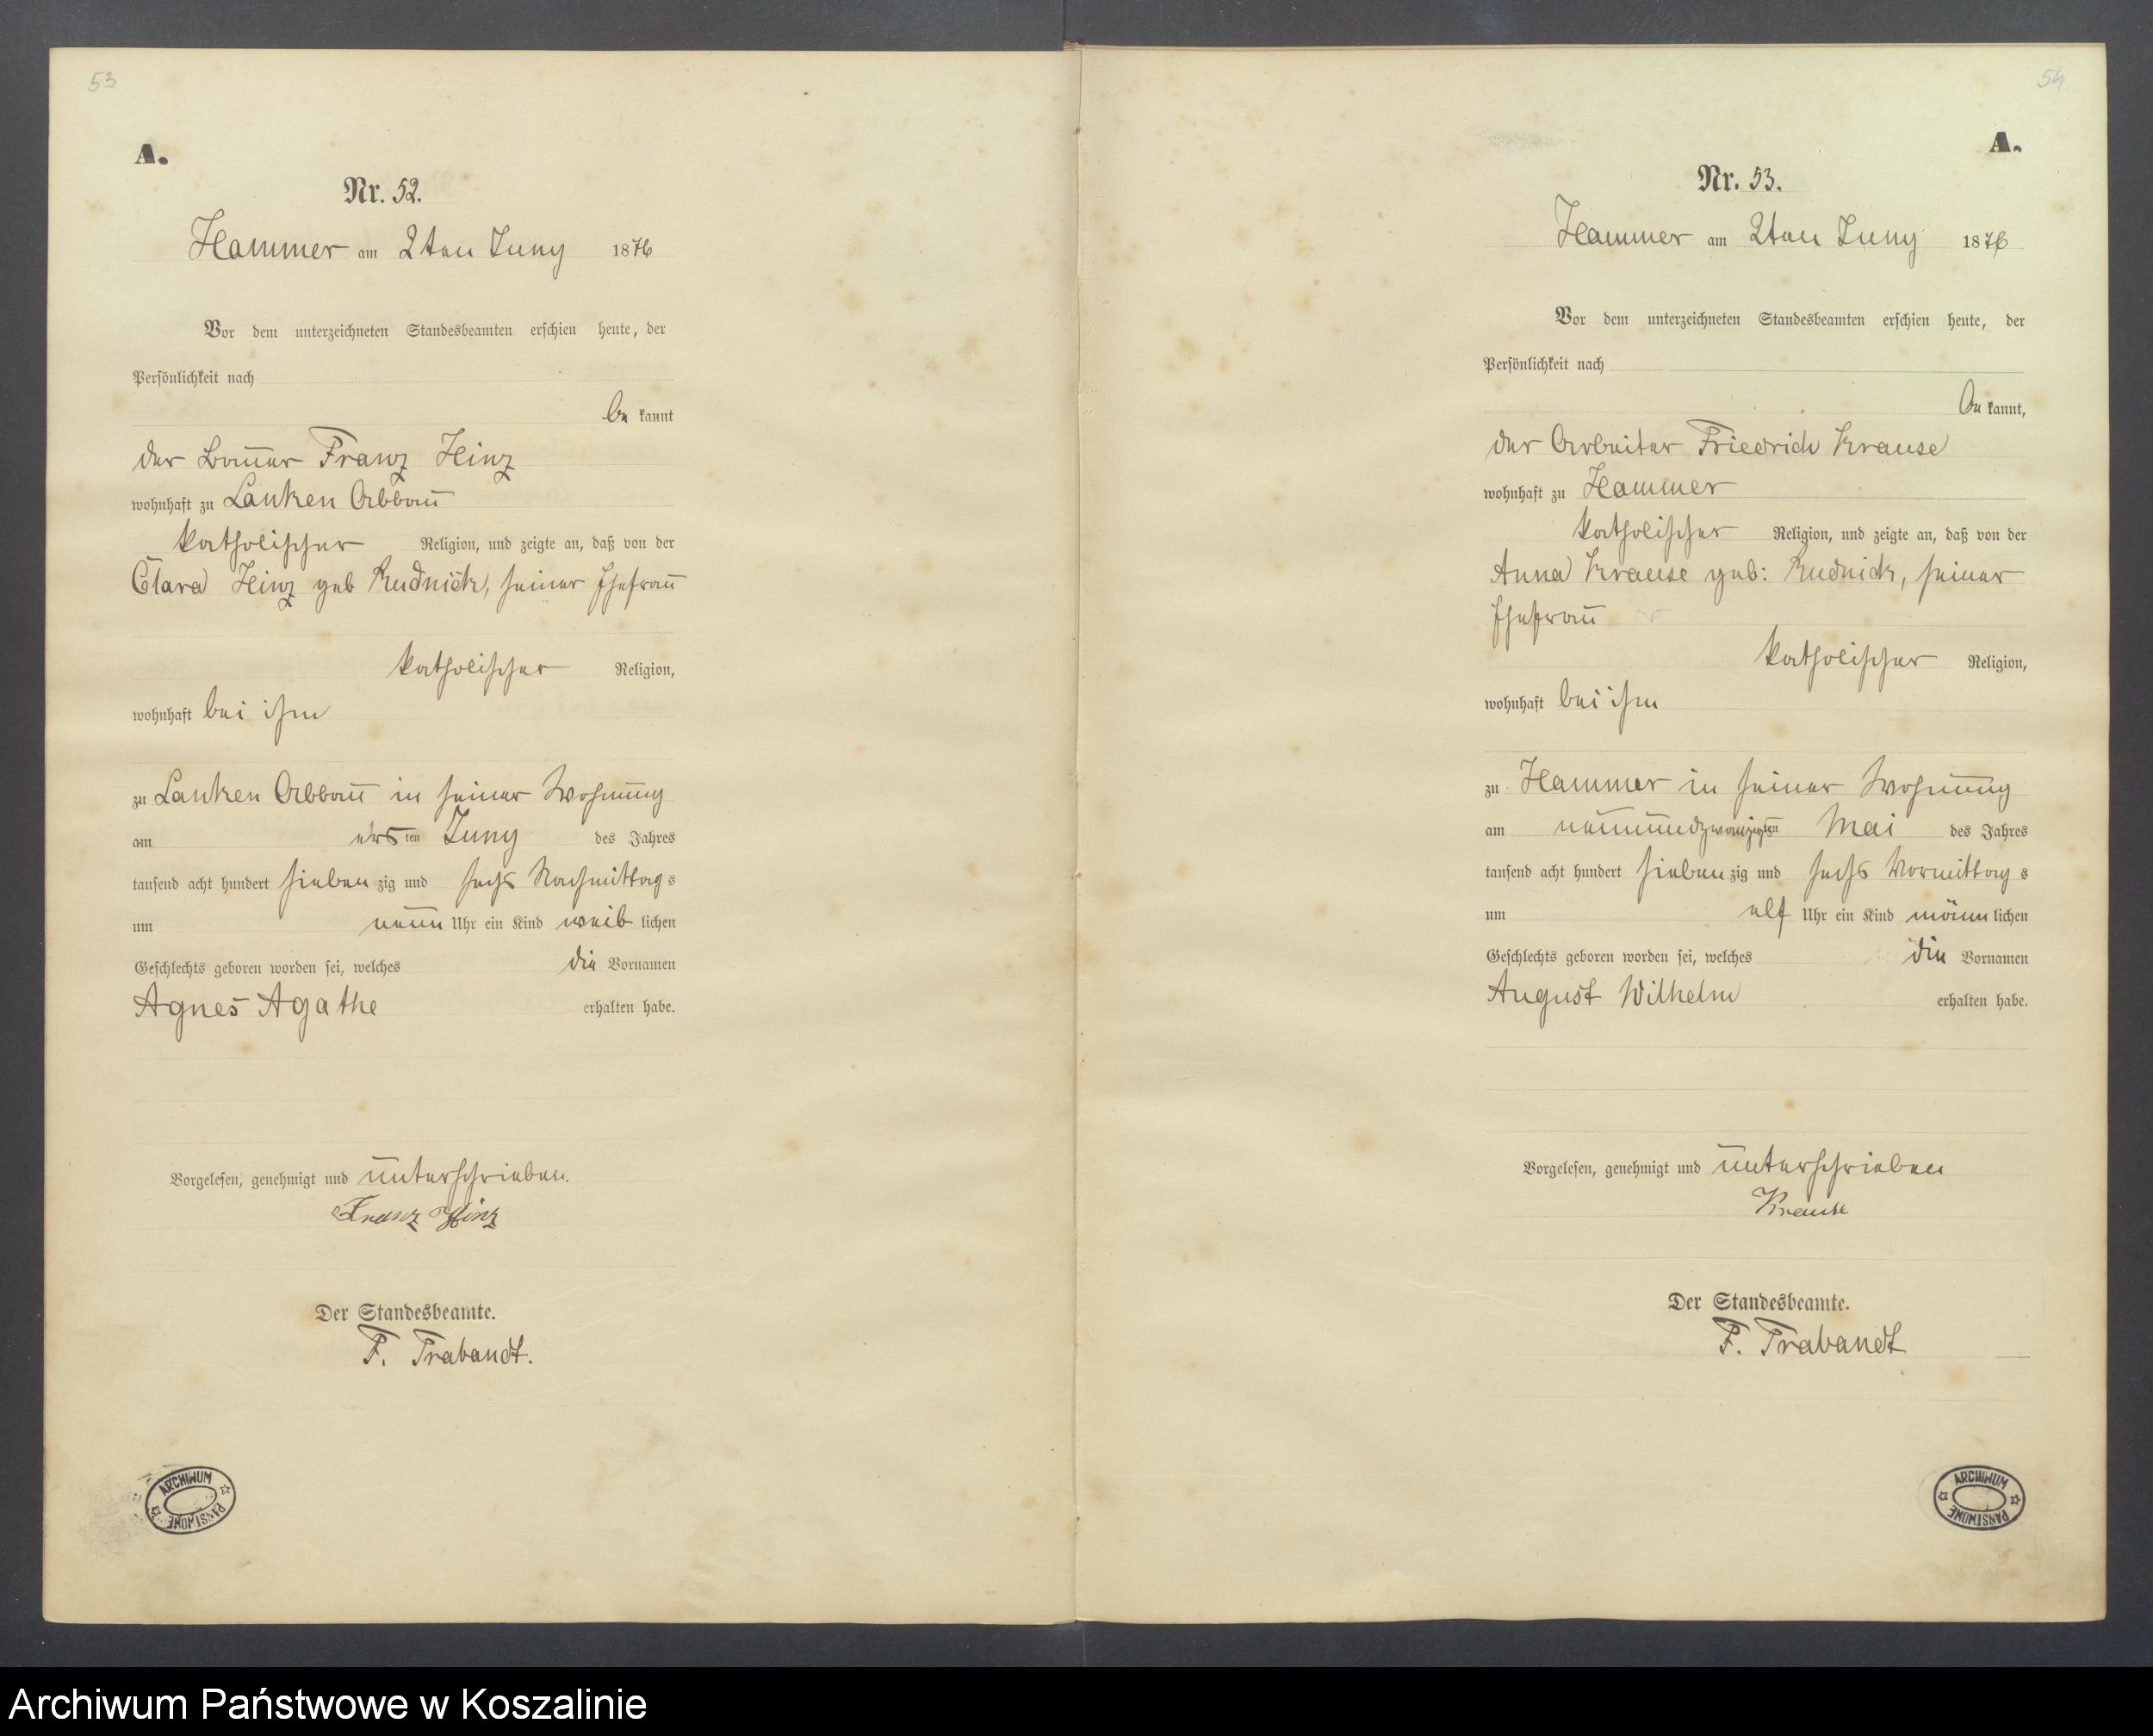 53
A.
Nr. 52.
Hammer am 2ten Juny 1876
Vor dem unterzeichneten Standesbeamten erschien heute, der
Persönlichkeit nach
be kannt
der Bauer Franz Hinz
wohnhaft zu Lanken Abbau
katholischer Religion, und zeigte an, daß von der
Clara Hinz geb Rudnick, seiner Ehefrau
katholischer Religion,
wohnhaft bei ihm
zu Lanken Abbau in seiner Wohnung
am ersten Juny des Jahres
tausend acht hundert sieben zig und sechs Nachmittags
um neun Uhr ein Kind weib lichen
Geschlechts geboren worden sei, welches die Vornamen
Agnes Agathe erhalten habe.
Vorgelesen, genehmigt und unterschrieben.
Franz Hinz
Der Standesbeamte.
F. Trabandt.
ARCHIWUM PAŃSTWOWE
54
A.
Nr. 53.
Hammer am 2ten Juny 1876
Vor dem unterzeichneten Standesbeamten erschien heute, der
Persönlichkeit nach
be kannt,
der Arbeiter Friedrich Krause
wohnhaft zu Hammer
katholischer Religion, und zeigte an, daß von der
Anna Krause geb: Rudnick, seiner
Ehefrau
katholischer Religion,
wohnhaft bei ihm
zu Hammer in seiner Wohnung
am neunundzwanzigsten Mai des Jahres
tausend acht hundert sieben zig und sechs Vormittags
um elf Uhr ein Kind männ lichen
Geschlechts geboren worden sei, welches die Vornamen
August Wilhelm erhalten habe.
Vorgelesen, genehmigt und unterschrieben
Krause
Der Standesbeamte.
F. Trabandt
ARCHIWUM PAŃSTWOWE
Archiwum Państwowe w Koszalinie